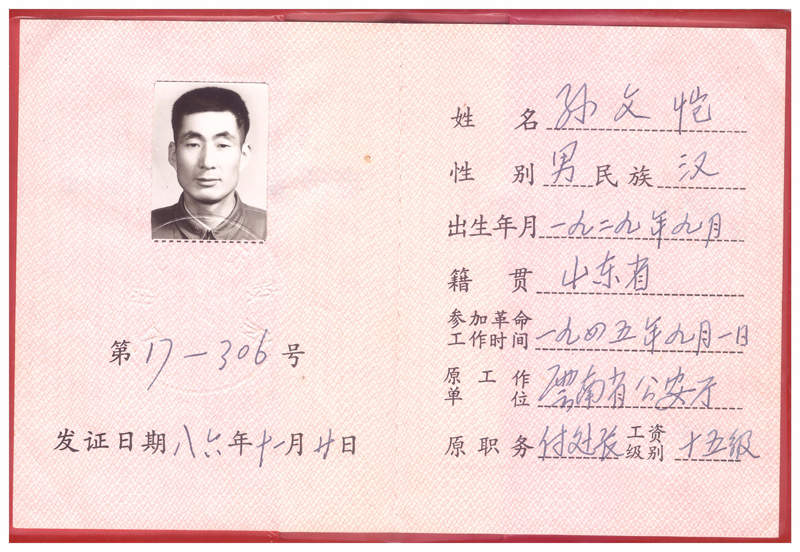 第17-306号
发证日期八六年十一月廿日
姓名 孙文恺
性别 男 民族 汉
出生年月 一九二九年九月
籍贯 山东省
参加革命工作时间 一九四五年九月一日
原工作单位 云南省公安厅
原职务 付处长 工资级别 十五级